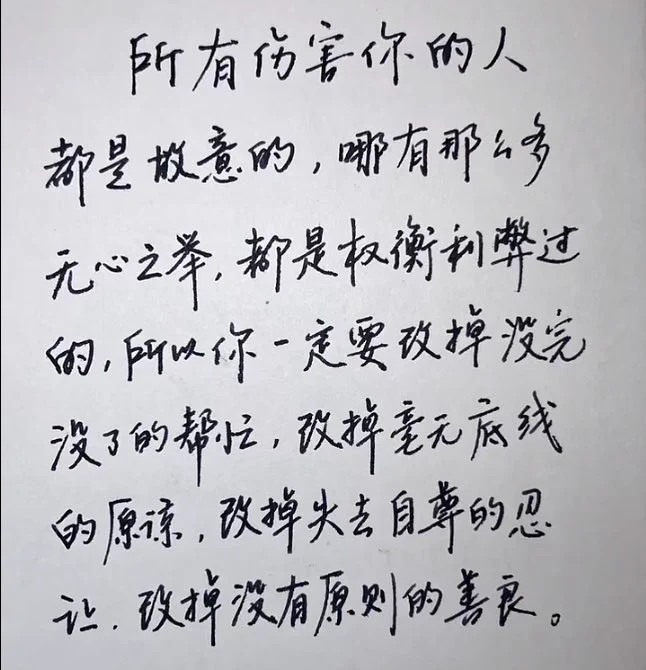 所有伤害你的人
都是故意的，哪有那么多
无心之举，都是权衡利弊过
的，所以你一定要改掉没完
没了的帮忙，改掉毫无底线
的原谅，改掉失去自尊的忍
让，改掉没有原则的善良。